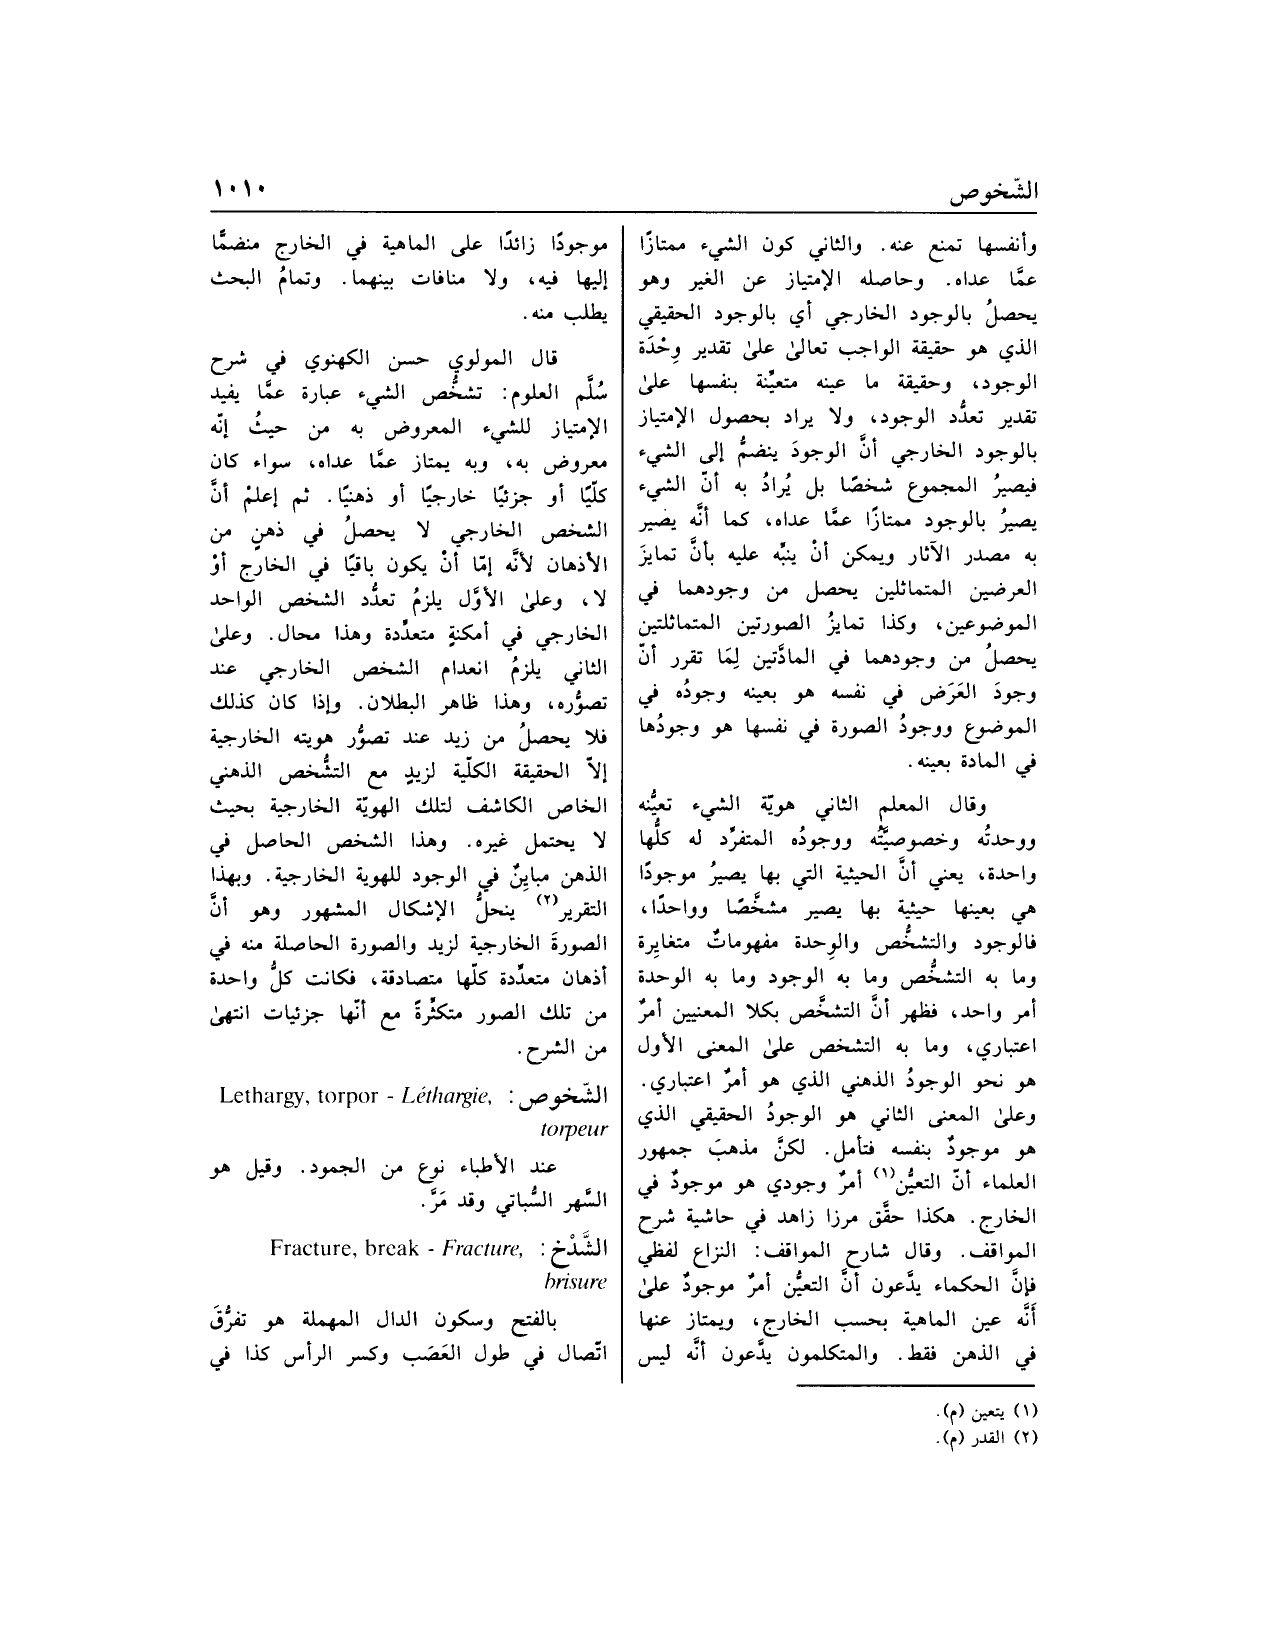 الشّخوص
١٠١٠
وأنفسها تمنع عنه. والثاني كون الشيء ممتازًا
عمَّا عداه. وحاصله الإمتياز عن الغير وهو
يحصلُ بالوجود الخارجي أي بالوجود الحقيقي
الذي هو حقيقة الواجب تعالىٰ علىٰ تقدير وِحْدَة
الوجود، وحقيقة ما عينه متعيِّنة بنفسها علىٰ
تقدير تعدُّد الوجود، ولا يراد بحصول الإمتياز
بالوجود الخارجي أنَّ الوجودَ ينضمُّ إلى الشيء
فيصيرُ المجموع شخصًا بل يُرادُ به أنّ الشيء
يصيرُ بالوجود ممتازًا عمَّا عداه، كما أنَّه يصير
به مصدر الآثار ويمكن أنْ ينبَّه عليه بأنَّ تمايزَ
العرضين المتماثلين يحصل من وجودهما في
الموضوعين، وكذا تمايزُ الصورتين المتماثلتين
يحصلُ من وجودهما في المادَّتين لِمَا تقرر أنّ
وجودَ العَرَض في نفسه هو بعينه وجودُه في
الموضوع ووجودُ الصورة في نفسها هو وجودُها
في المادة بعينه.
وقال المعلم الثاني هويّة الشيء تعيُّنه
ووحدتُه وخصوصيَّتُه ووجودُه المتفرِّد له كلُّها
واحدة، يعني أنَّ الحيثية التي بها يصيرُ موجودًا
هي بعينها حيثية بها يصير مشخَّصًا وواحدًا،
فالوجود والتشخُّص والوحدة مفهوماتٌ متغايرة
وما به التشخُّص وما به الوجود وما به الوحدة
أمر واحد، فظهر أنَّ التشخَّص بكلا المعنيين أمرٌ
اعتباري، وما به التشخص علىٰ المعنى الأول
هو نحو الوجودُ الذهني الذي هو أمرٌ اعتباري.
وعلىٰ المعنى الثاني هو الوجودُ الحقيقي الذي
هو موجودٌ بنفسه فتأمل. لكنَّ مذهبَ جمهور
العلماء أنّ التعيُّن(١) أمرٌ وجودي هو موجودٌ في
الخارج. هكذا حقَّق مرزا زاهد في حاشية شرح
المواقف. وقال شارح المواقف: النزاع لفظي
فإنَّ الحكماء يدَّعون أنَّ التعيُّن أمرٌ موجودٌ علىٰ
أَنَّه عين الماهية بحسب الخارج، ويمتاز عنها
في الذهن فقط. والمتكلمون يدَّعون أنَّه ليس
موجودًا زائدًا على الماهية في الخارج منضمًّا
إليها فيه، ولا منافات بينهما. وتمامُ البحث
يطلب منه.
قال المولوي حسن الكهنوي في شرح
سُلَّم العلوم: تشخُّص الشيء عبارة عمَّا يفيد
الإمتياز للشيء المعروض به من حيثُ إنّه
معروض به، وبه يمتاز عمَّا عداه، سواء كان
كلّيًا أو جزئيًا خارجيًا أو ذهنيًا. ثم إعلمْ أنَّ
الشخص الخارجي لا يحصلُ في ذهنٍ من
الأذهان لأنَّه إمّا أنْ يكون باقيًا في الخارج أوْ
لا، وعلىٰ الأوَّل يلزمُ تعدُّد الشخص الواحد
الخارجي في أمكنةٍ متعدِّدة وهذا محال. وعلىٰ
الثاني يلزمُ انعدام الشخص الخارجي عند
تصوُّره، وهذا ظاهر البطلان. وإذا كان كذلك
فلا يحصلُ من زيد عند تصوُّر هويته الخارجية
إلاّ الحقيقة الكلّية لزيدٍ مع التشُّخص الذهني
الخاص الكاشف لتلك الهويّة الخارجية بحيث
لا يحتمل غيره. وهذا الشخص الحاصل في
الذهن مباينٌ في الوجود للهوية الخارجية. وبهذا
التقرير(٢) ينحلُّ الإشكال المشهور وهو أنَّ
الصورةَ الخارجية لزيد والصورة الحاصلة منه في
أذهان متعدِّدة كلّها متصادقة، فكانت كلُّ واحدة
من تلك الصور متكثِّرةً مع أنّها جزئيات انتهىٰ
من الشرح.
الشّخوص: Lethargy, torpor - Léthargie,
torpeur
عند الأطباء نوع من الجمود. وقيل هو
السَّهر السُّباتي وقد مَرَّ.
الشَّدْخ: Fracture, break - Fracture,
brisure
بالفتح وسكون الدال المهملة هو تفرُّقَ
اتّصال في طول العَصَب وكسر الرأس كذا في
(١) يتعين (م).
(٢) القدر (م).